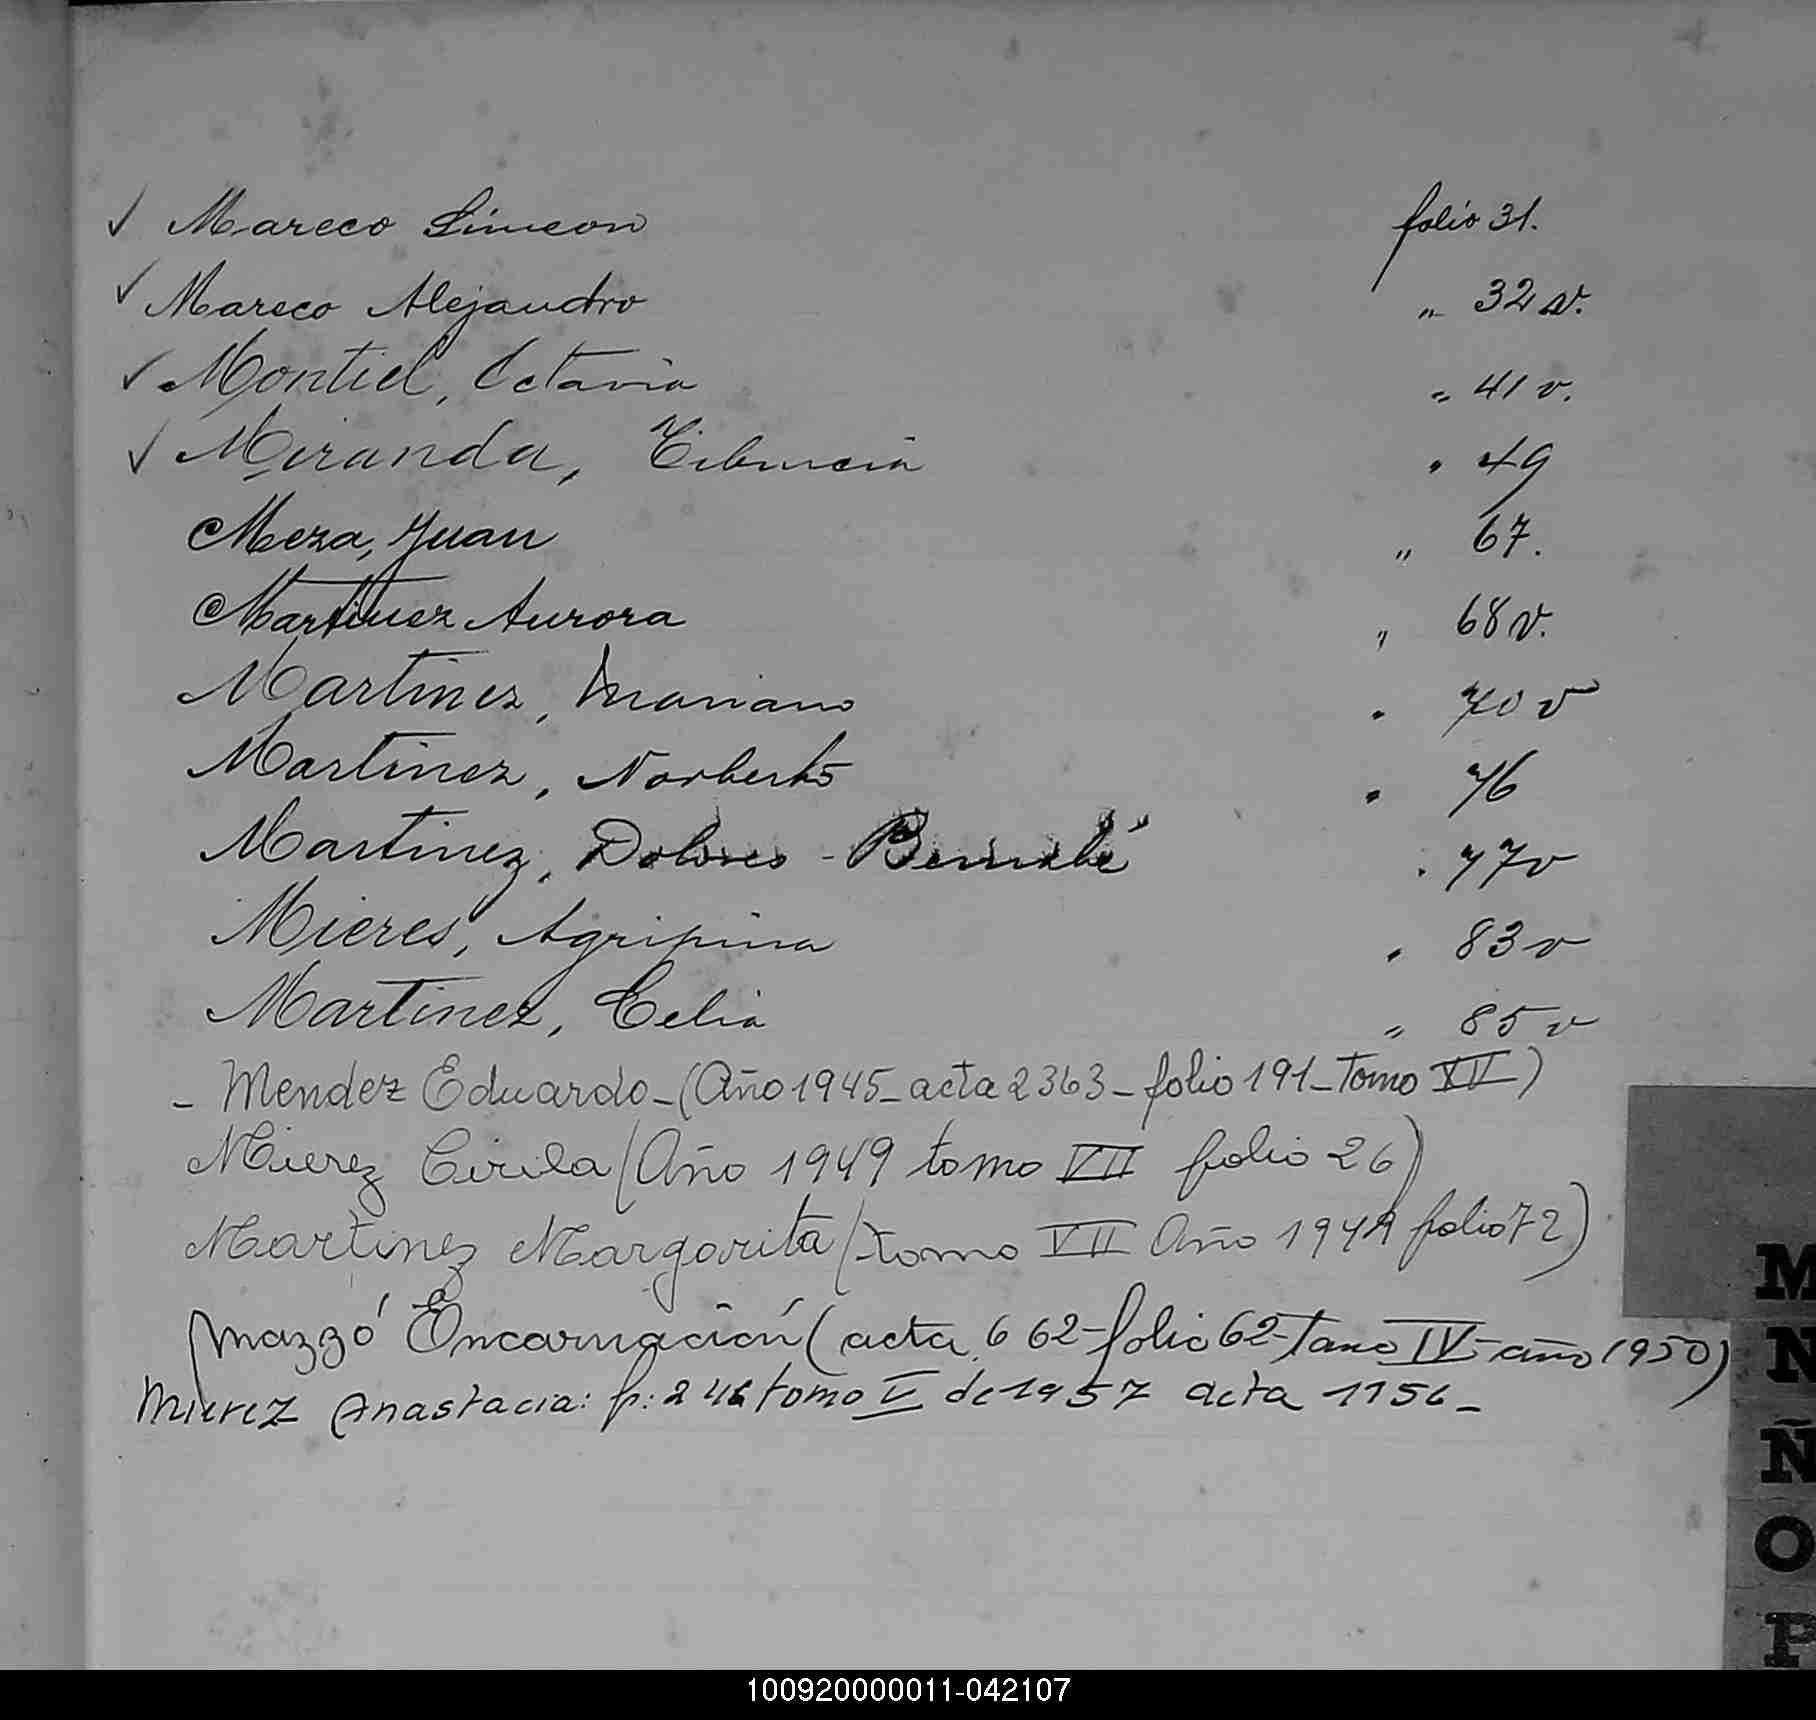 ✓ Mareco Simeon folio 31.
✓ Mareco Alejandro " 32 v.
✓ Montiel, Octavia " 41 v.
✓ Miranda, Tiburcia " 49
Meza, Juan " 67.
Martinez Aurora " 68 v.
Martinez, Mariano " 70 v
Martinez, Norberto " 76
Martinez, Dolores - Bernabé " 77 v
Mieres, Agripina " 83 v
Martinez, Celia " 85 v
- Mendez Eduardo - (Año 1945 - acta 2363 - folio 191 - Tomo XV)
Mierez Cirila (Año 1949 tomo VII folio 26)
Martinez Margarita (tomo VII Año 1949 folio 72)
Mazzó Encarnación (acta 662 - folio 62 - Tomo IV - año 1950)
Mierez Anastacia: f: 246 tomo V de 1957 acta 1156 -
M
N
Ñ
O
P
100920000011-042107